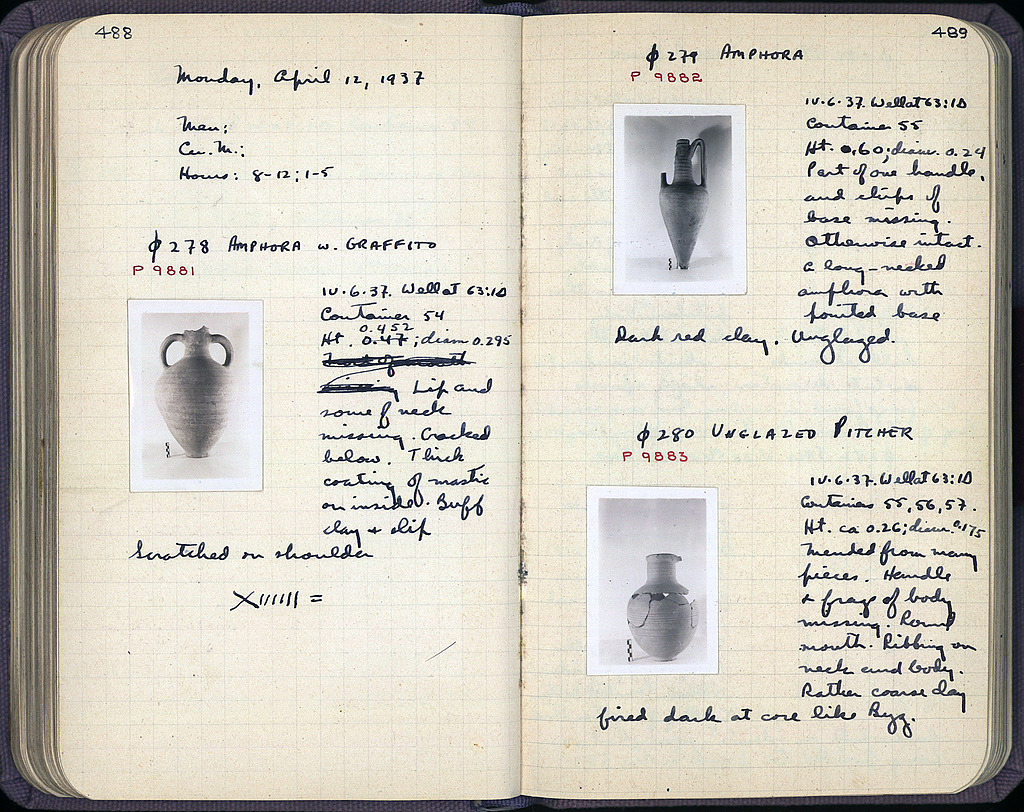 488
Monday, April 12, 1937
Men:
Cu. M.:
Hours: 8-12; 1-5
ϕ 278 AMPHORA W. GRAFFITO
P 9881
IV.6.37. Well at 63:ΙΔ
Container 54
0.452
Ht. 0.47; diam 0.295
Lip and
some of neck
missing. Cracked
below. Thick
coating of mastic
on inside. Buff
clay + slip
Scratched on shoulder
XIIIIII =
489
ϕ 279 AMPHORA
P 9882
IV.6.37. Well at 63:ΙΔ
Container 55
Ht. 0.60; diam. 0.24
Part of one handle,
and chips of
base missing.
Otherwise intact.
A long-necked
amphora with
pointed base
Dark red clay. Unglazed.
ϕ 280 UNGLAZED PITCHER
P 9883
IV.6.37. Well at 63:ΙΔ
Containers 55, 56, 57.
Ht. ca 0.26; diam. 0.175
Mended from many
pieces. Handle
+ frags of body
missing. Round
mouth. Ribbing on
neck and body.
Rather coarse clay
fired dark at core like Byz.